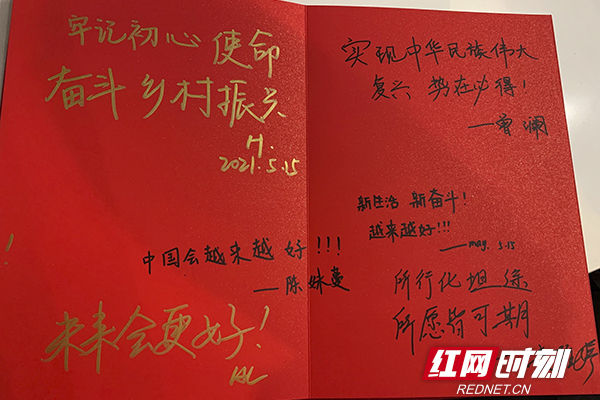 牢记初心 使命
奋斗 乡村振兴
H.
2021.5.15
中国会越来越好!!!
——陈姝蔓
未来会更好!
实现中华民族伟大
复兴 势在必得!
——曾 斓
新生活 新奋斗!
越来越好!!!
——may. 5.15
所行化坦途
所愿皆可期
红网时刻
REDNET.CN